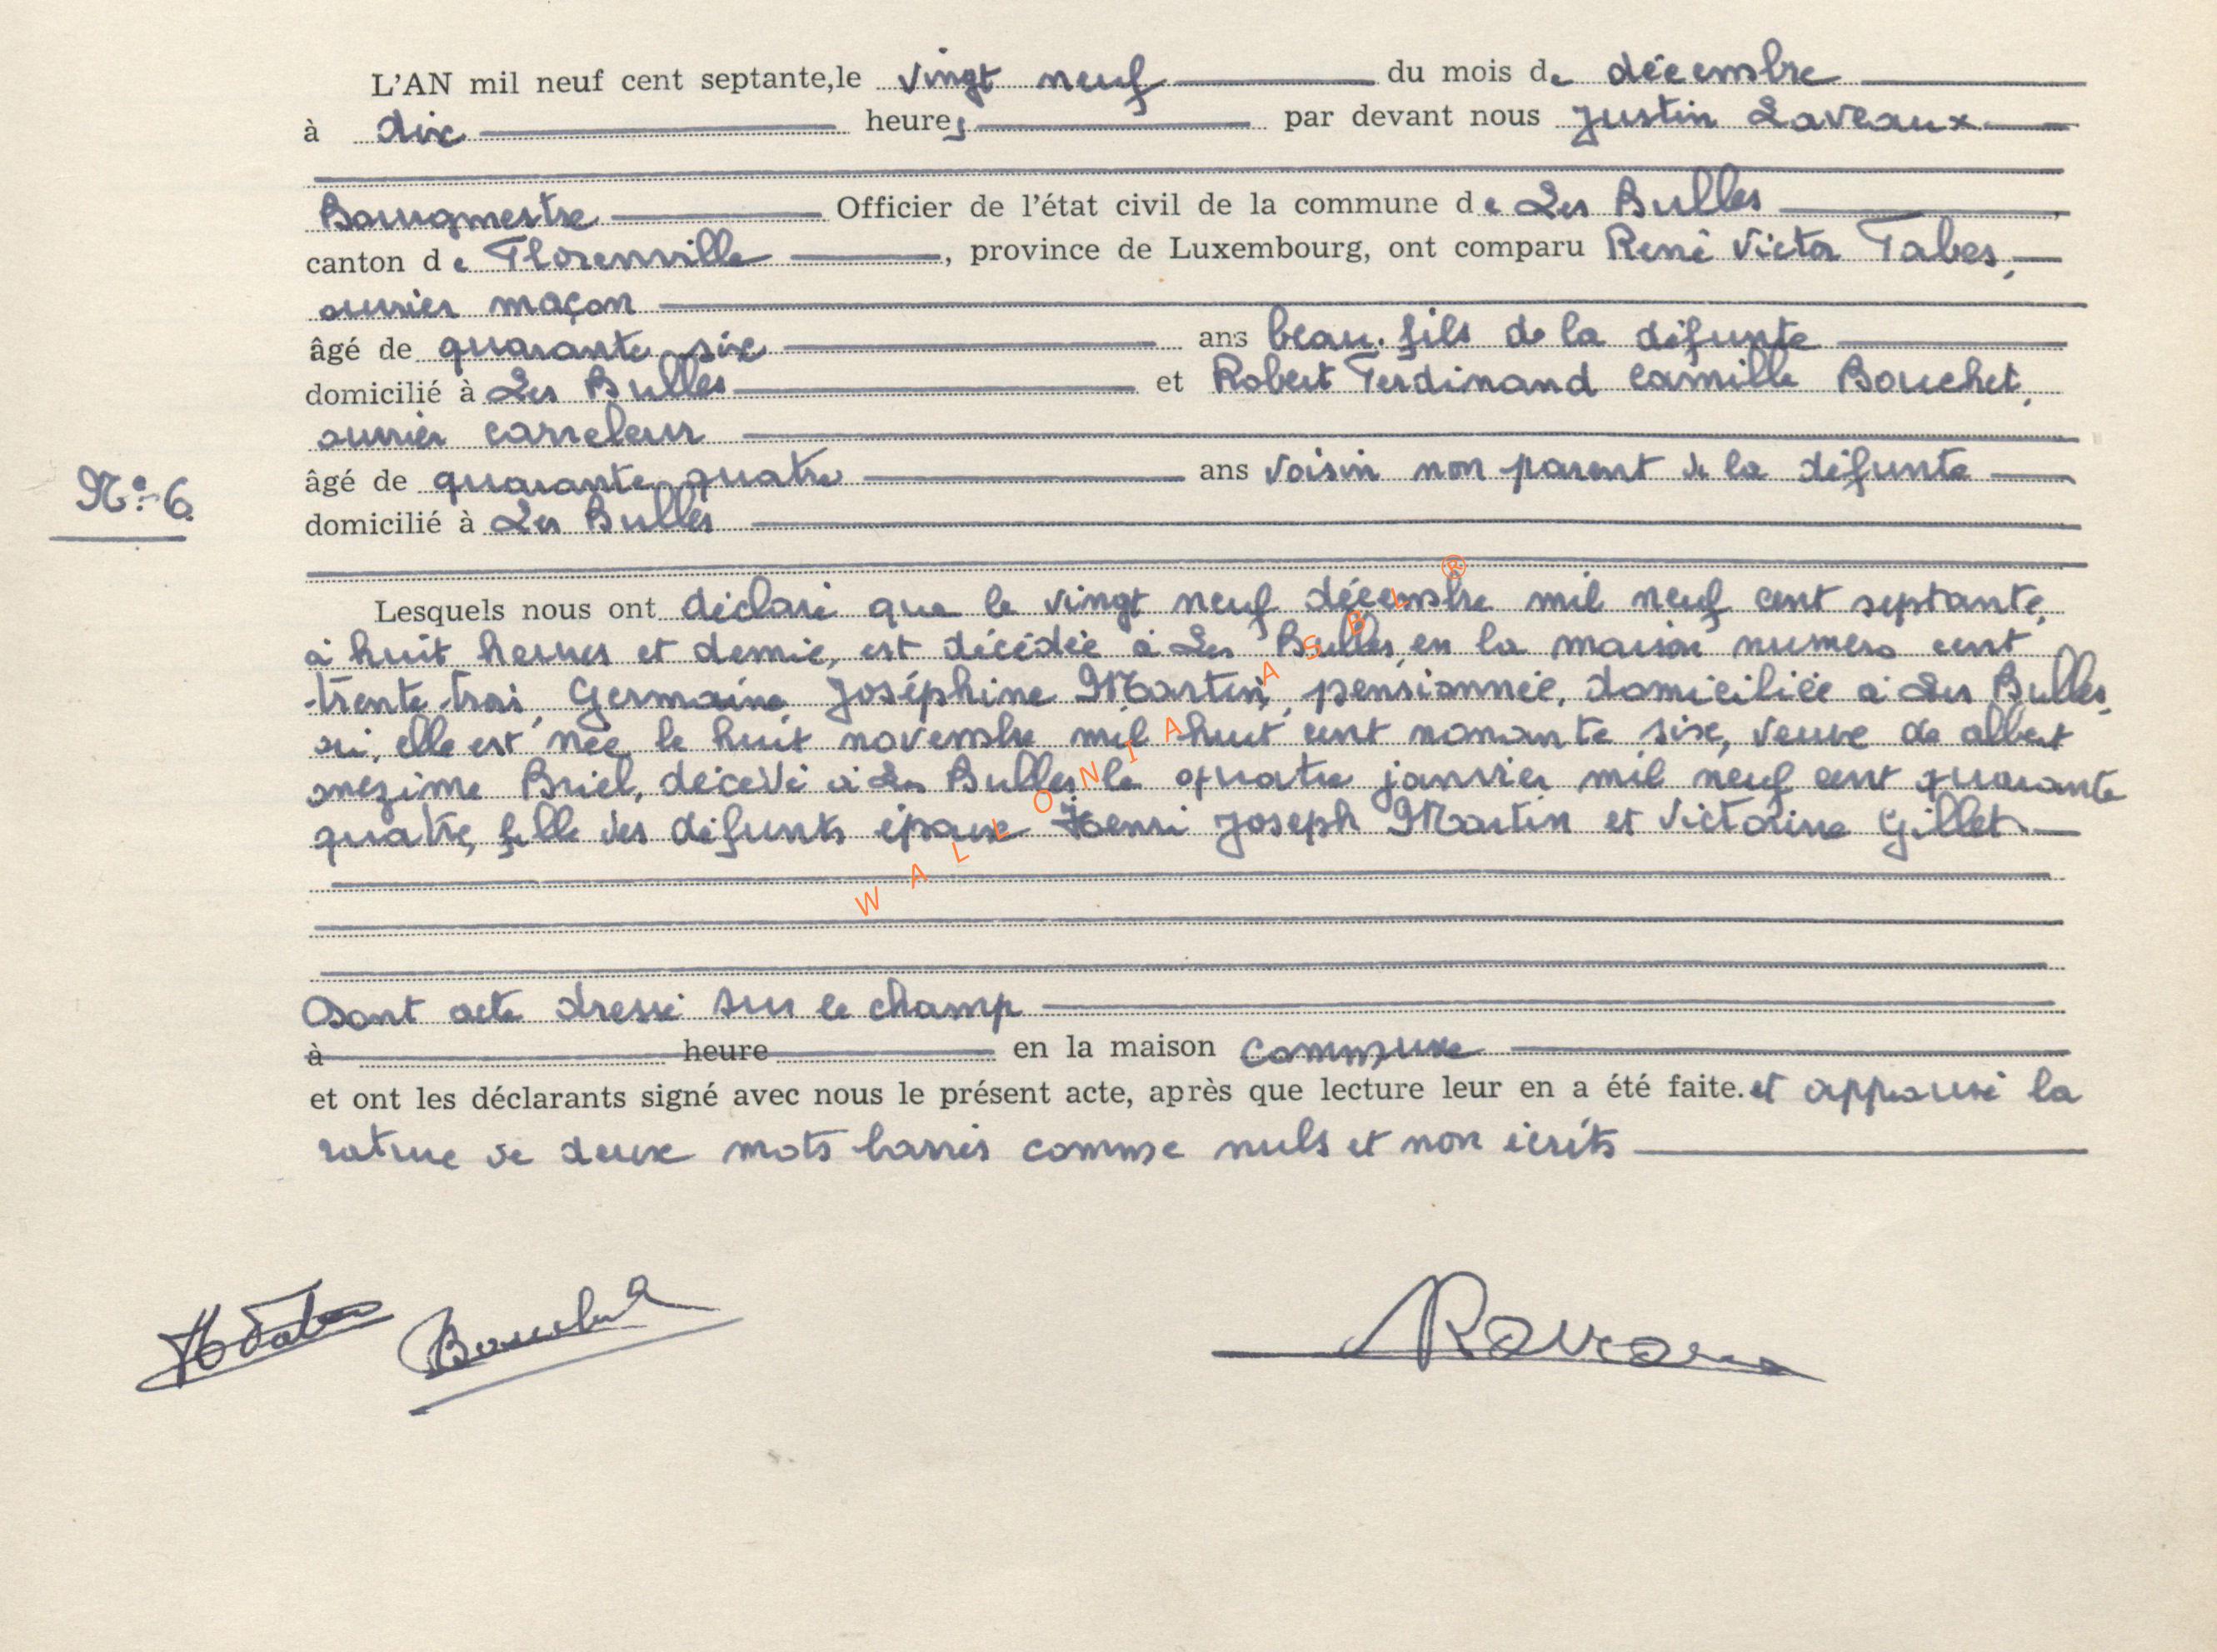 L'AN mil neuf cent septante, le vingt neuf du mois de décembre
à dix heures par devant nous Justin Laveaux
Bourgmestre Officier de l'état civil de la commune de Les Bulles,
canton de Florenville, province de Luxembourg, ont comparu René Victor Tabes,
ouvrier maçon
âgé de quarante six ans beau-fils de la défunte
domicilié à Les Bulles et Robert Ferdinand Camille Bouchet,
ouvrier carreleur
âgé de quarante quatre ans voisin non parent de la défunte
N° 6.
domicilié à Les Bulles
Lesquels nous ont déclaré que le vingt neuf décembre mil neuf cent septante,
à huit heures et demie, est décédée à Les Bulles, en la maison numéro cent
trente trois, Germaine Joséphine Martin, pensionnée, domiciliée à Les Bulles,
où elle est née le huit novembre mil huit cent nonante six, veuve de Albert
Onezime Briel, décédé à Les Bulles le quatre janvier mil neuf cent quarante
quatre, fille des défunts époux Henri Joseph Martin et Victorine Gillet
Dont acte dressé sur le champ
à heure en la maison commune
et ont les déclarants signé avec nous le présent acte, après que lecture leur en a été faite. et approuvé la
rature de deux mots barrés comme nuls et non écrits
Bouchet
WALLONIA ASBL ®